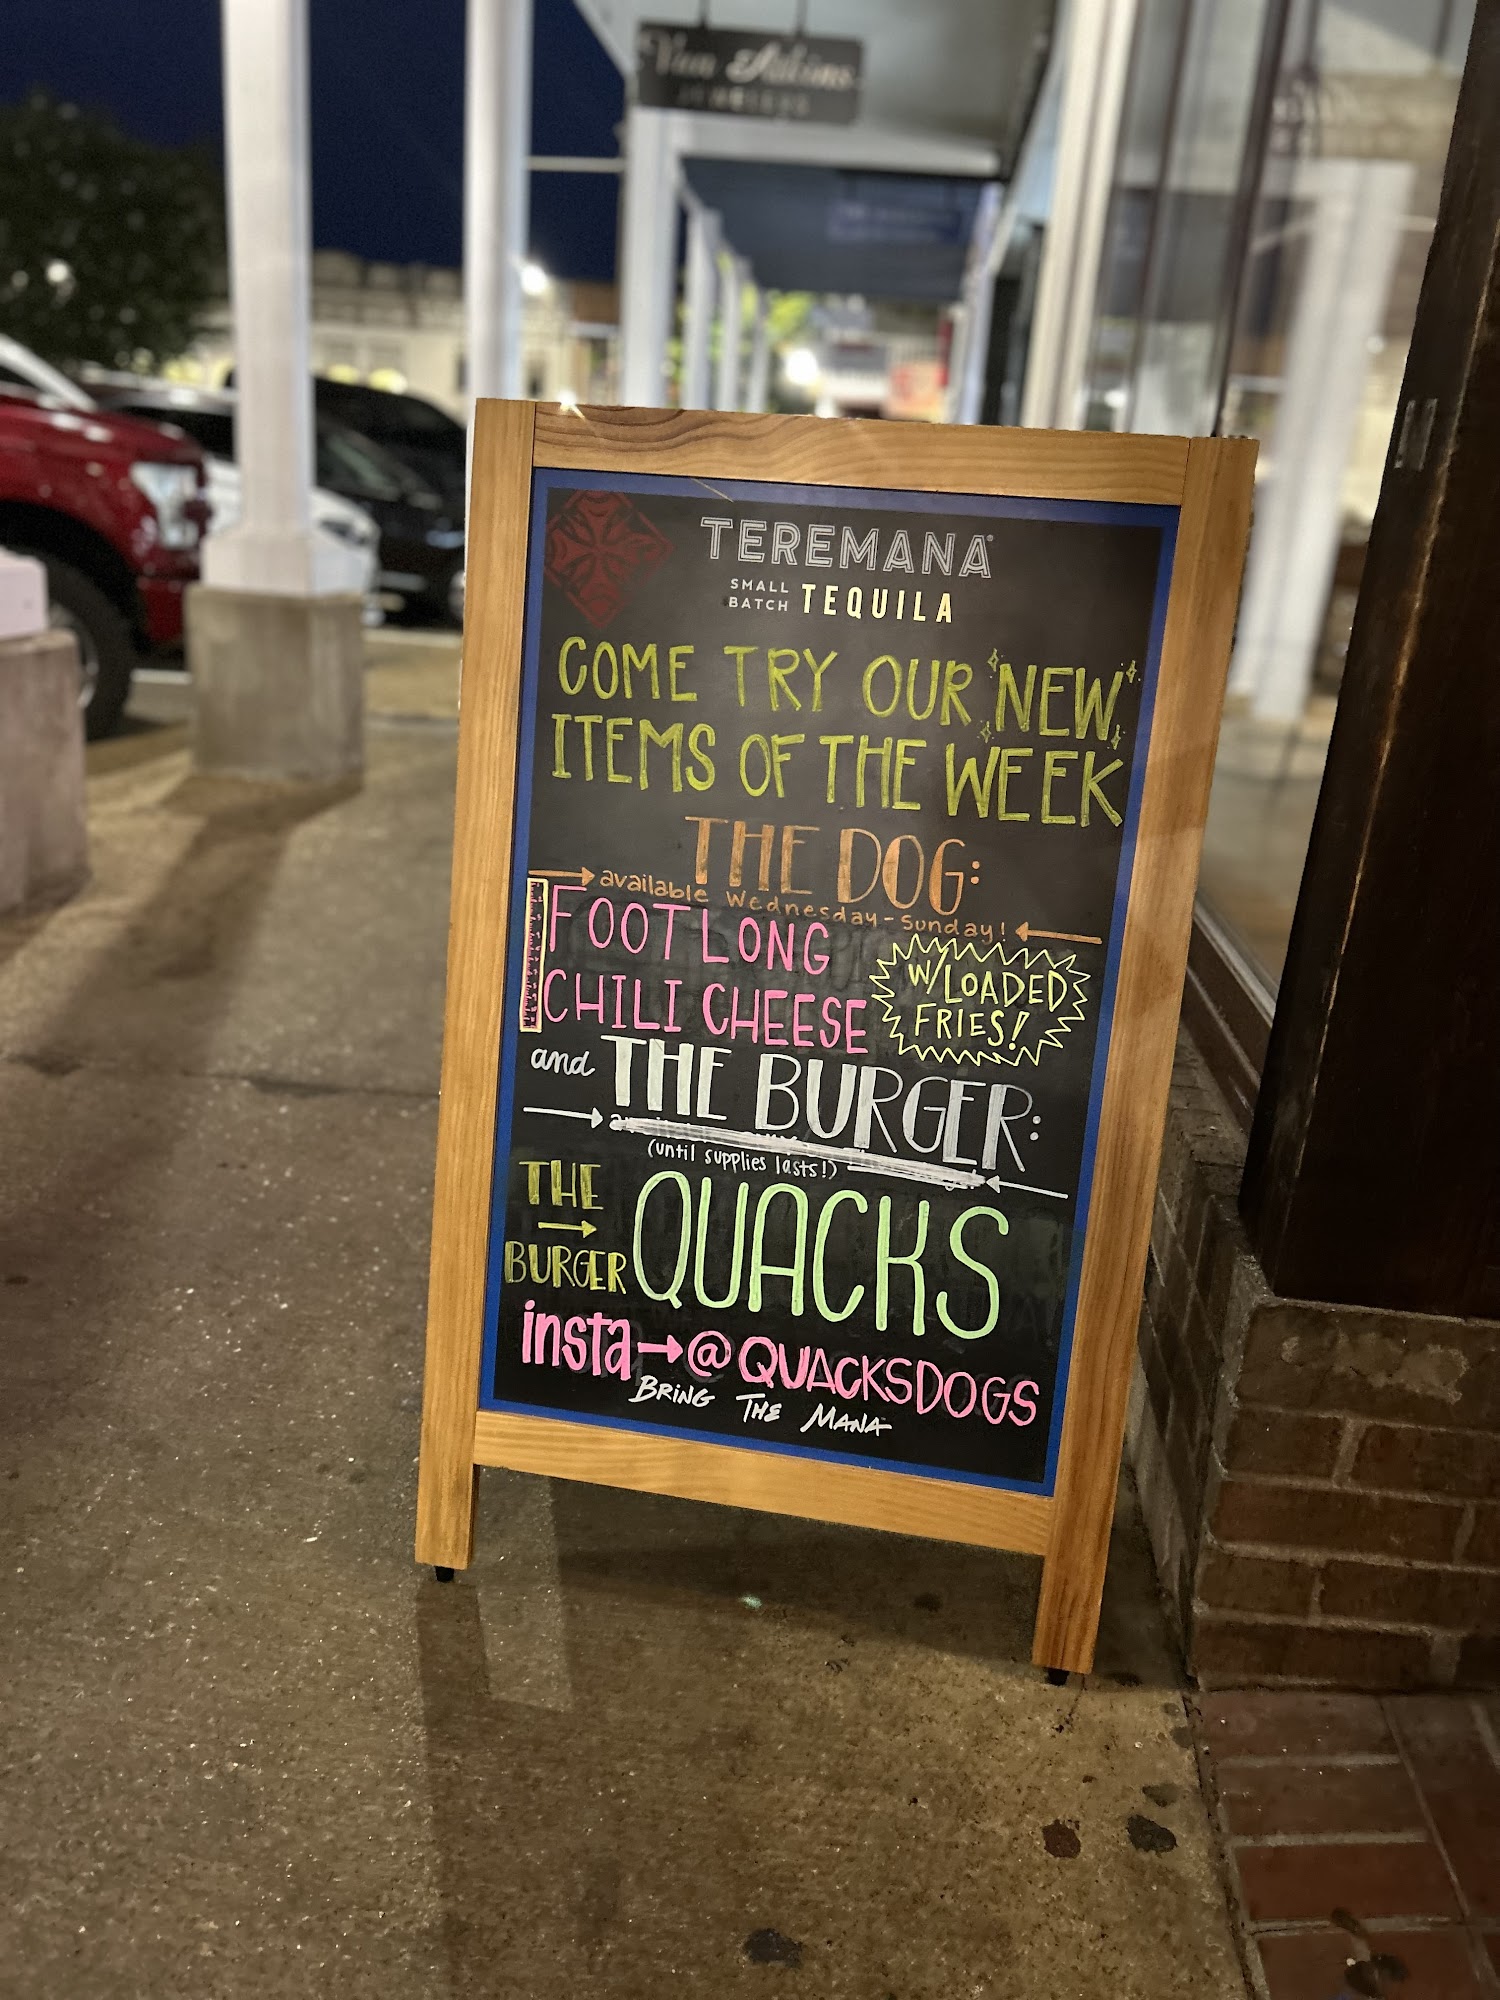 Van Atkins
JEWELERS
TEREMANA®
SMALL BATCH TEQUILA
COME TRY OUR NEW
ITEMS OF THE WEEK
THE DOG:
available Wednesday - Sunday!
FOOT LONG
CHILI CHEESE
W/LOADED
FRIES!
and THE BURGER:
(until supplies lasts!)
THE
BURGER
QUACKS
insta→@QUACKSDOGS
BRING THE MANA